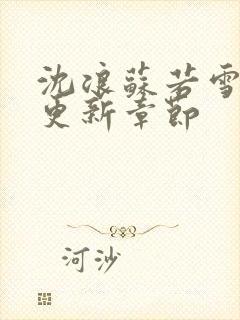 沈浪蘇若雪
更新章節
河沙